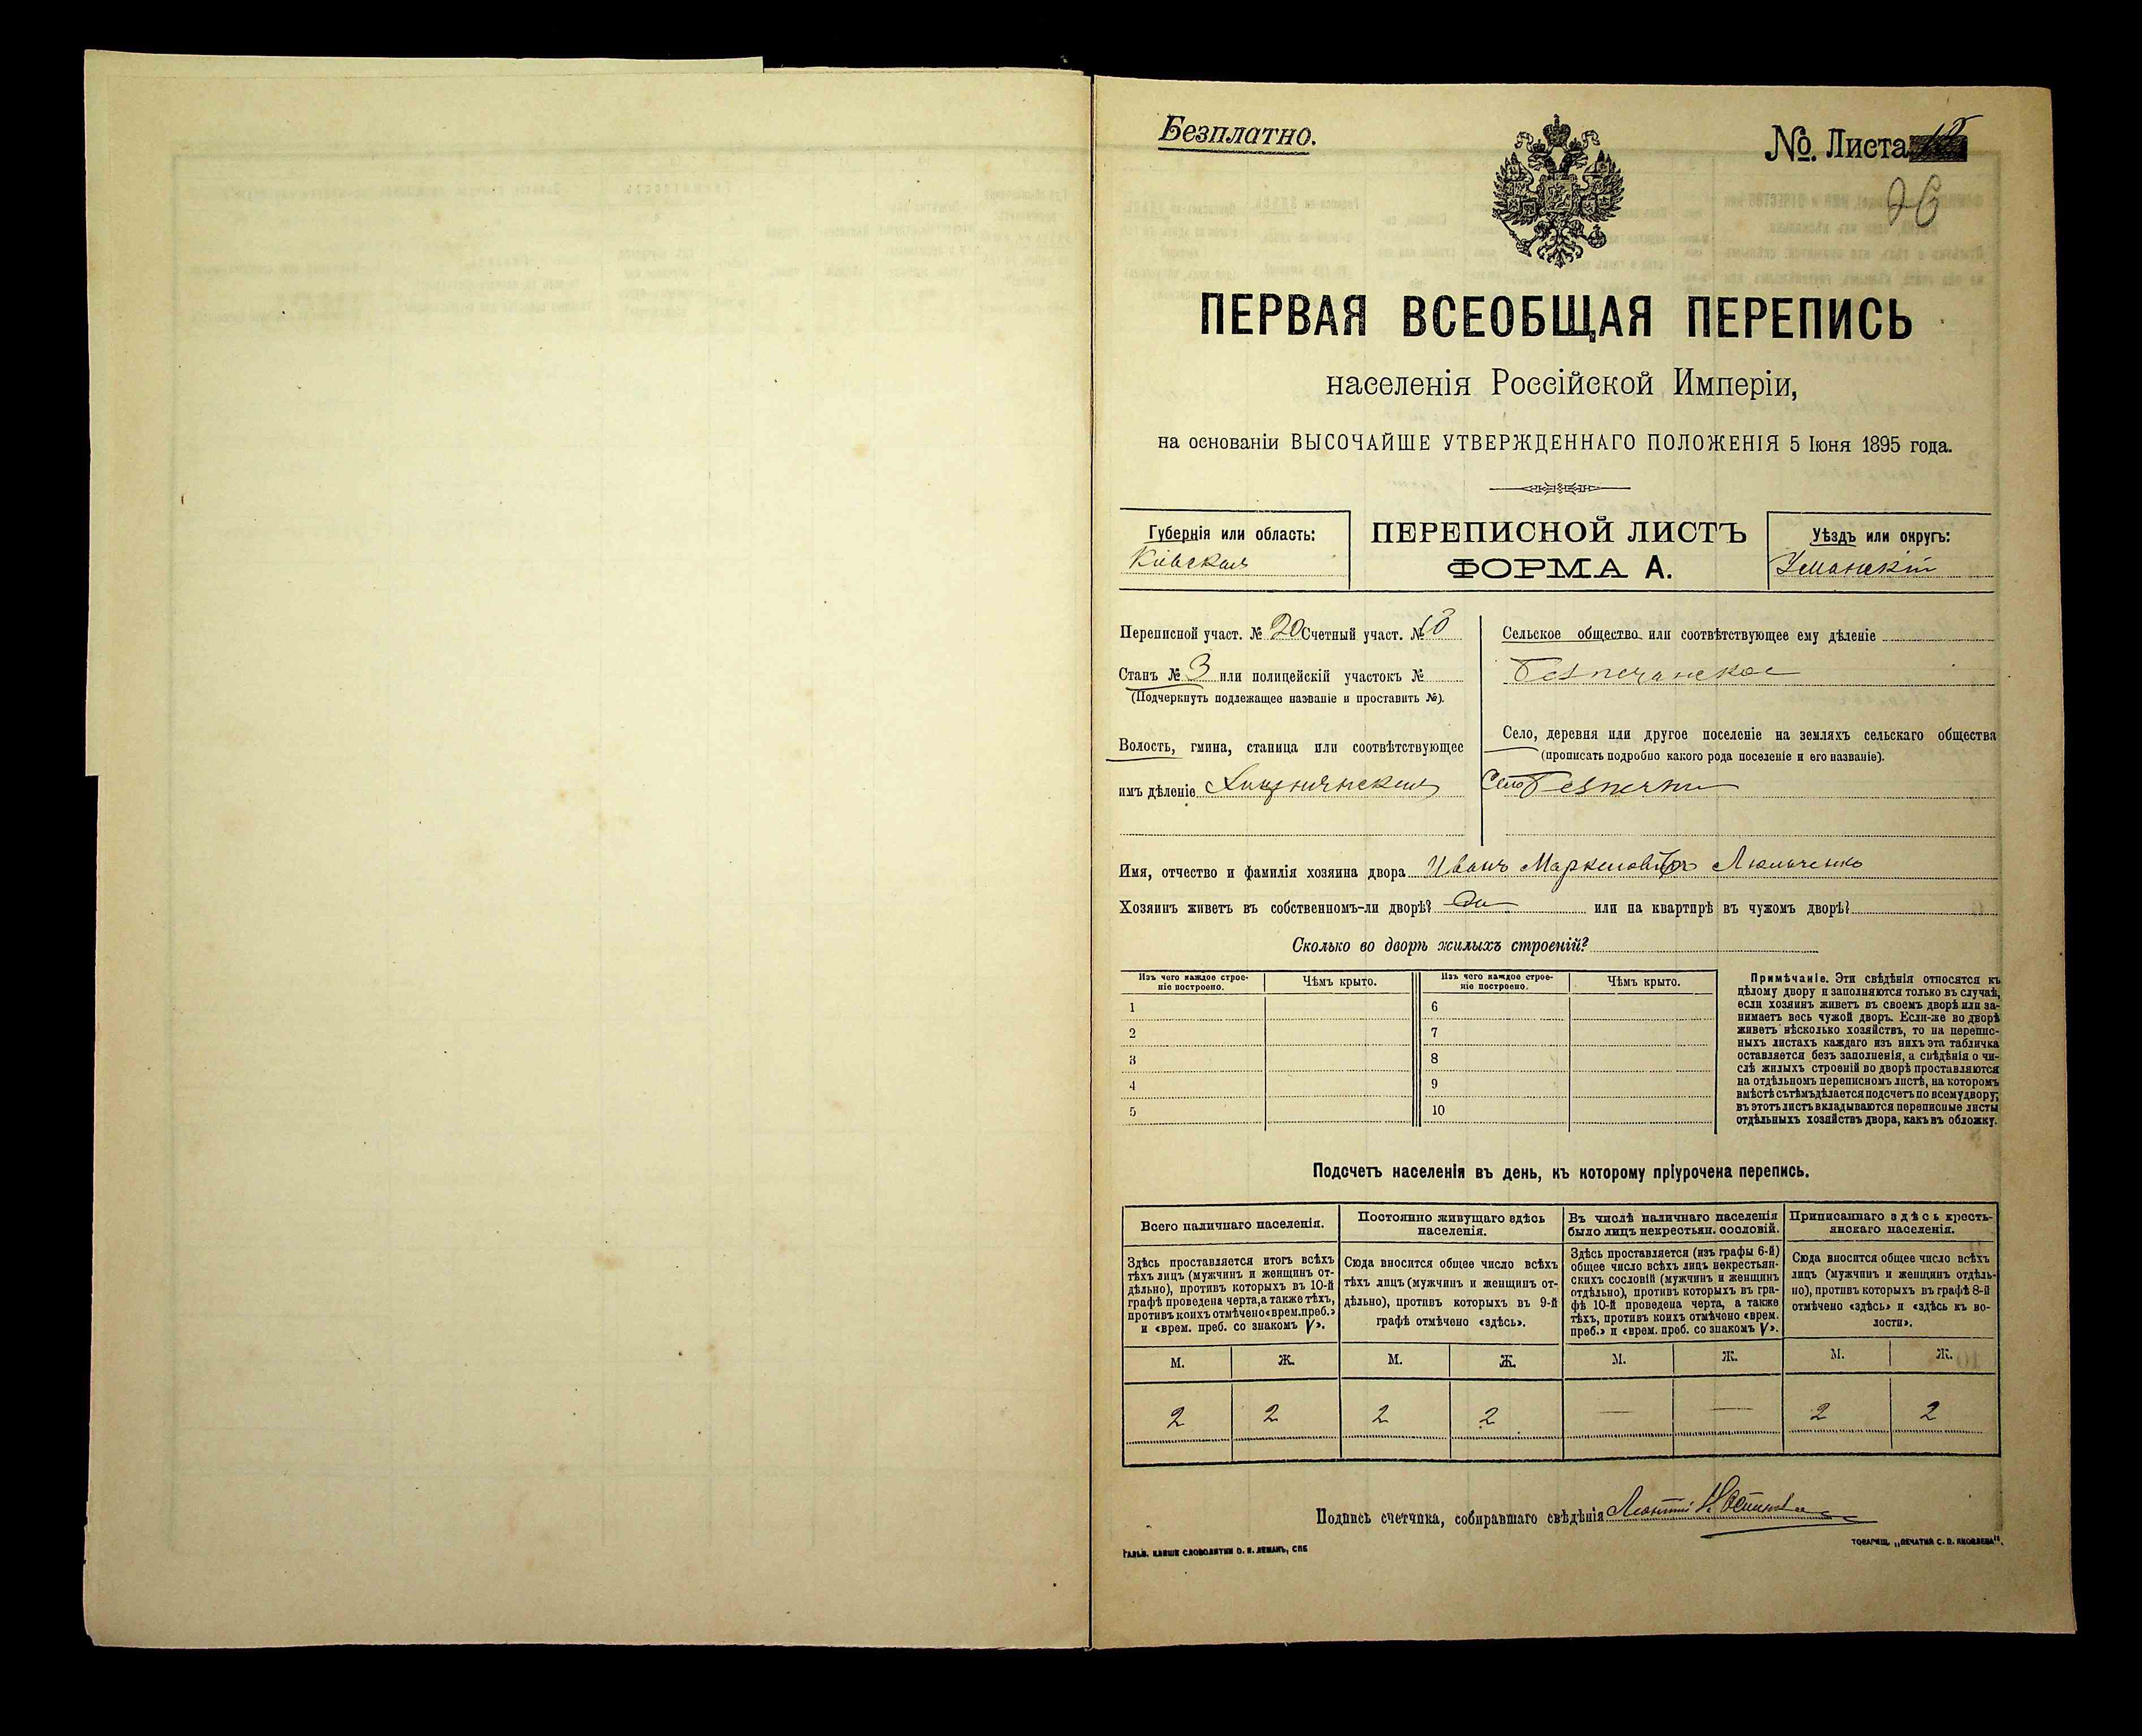 Безплатно.
№ Листа
26
ПЕРВАЯ ВСЕОБЩАЯ ПЕРЕПИСЬ
населенія Россійской Имперіи,
на основаніи ВЫСОЧАЙШЕ УТВЕРЖДЕННАГО ПОЛОЖЕНІЯ 5 Іюня 1895 года.
Губернія или область:
Кіевская
ПЕРЕПИСНОЙ ЛИСТЪ
ФОРМА А.
Уѣздъ или округъ:
Уманскій
Переписной участ. № 20 Счетный участ. № 10
Станъ № 3 или полицейскій участокъ №
(Подчеркнуть подлежащее названіе и проставить №).
Волость, гмина, станица или соотвѣтствующее
имъ дѣленіе
Сельское общество или соотвѣтствующее ему дѣленіе
Безпечанское
Село, деревня или другое поселеніе на земляхъ сельскаго общества
(прописать подробно какого рода поселеніе и его названіе).
Село
Имя, отчество и фамилія хозяина двора Иванъ Маркеловичъ
Хозяинъ живетъ въ собственномъ-ли дворѣ? да или на квартирѣ въ чужомъ дворѣ?
Сколько во дворѣ жилыхъ строеній?
Изъ чего каждое строе-
ніе построено.
Чѣмъ крыто.
1
2
3
4
5
Изъ чего каждое строе-
ніе построено.
Чѣмъ крыто.
6
7
8
9
10
Примѣчаніе. Эти свѣдѣнія относятся къ
цѣлому двору и заполняются только въ случаѣ,
если хозяинъ живетъ въ своемъ дворѣ или за-
нимаетъ весь чужой дворъ. Если-же во дворѣ
живетъ нѣсколько хозяйствъ, то на перепис-
ныхъ листахъ каждаго изъ нихъ эта табличка
оставляется безъ заполненія, а свѣдѣнія о чи-
слѣ жилыхъ строеній во дворѣ проставляются
на отдѣльномъ переписномъ листѣ, на которомъ
вмѣстѣ съ тѣмъ дѣлается подсчетъ по всему двору;
въ этотъ листъ вкладываются переписные листы
отдѣльныхъ хозяйствъ двора, какъ въ обложку.
Подсчетъ населенія въ день, къ которому пріурочена перепись.
Всего наличнаго населенія.
Здѣсь проставляется итогъ всѣхъ
тѣхъ лицъ (мужчинъ и женщинъ от-
дѣльно), противъ которыхъ въ 10-й
графѣ проведена черта, а также тѣхъ,
противъ коихъ отмѣчено «врем. преб.»
и «врем. преб. со знакомъ V».
М. Ж.
2 2
Постоянно живущаго здѣсь
населенія.
Сюда вносится общее число всѣхъ
тѣхъ лицъ (мужчинъ и женщинъ от-
дѣльно), противъ которыхъ въ 9-й
графѣ отмѣчено «здѣсь».
М. Ж.
2 2
Въ числѣ наличнаго населенія
было лицъ некрестьян. сословій.
Здѣсь проставляется (изъ графы 6-й)
общее число всѣхъ лицъ некрестьян-
скихъ сословій (мужчинъ и женщинъ
отдѣльно), противъ которыхъ въ гра-
фѣ 10-й проведена черта, а также
тѣхъ, противъ коихъ отмѣчено «врем.
преб.» и «врем. преб. со знакомъ V».
М. Ж.
— —
Приписаннаго здѣсь кресть-
янскаго населенія.
Сюда вносится общее число всѣхъ
лицъ (мужчинъ и женщинъ отдѣль-
но), противъ которыхъ въ графѣ 8-й
отмѣчено «здѣсь» и «здѣсь къ во-
лости».
М. Ж.
2 2
Подпись счетчика, собиравшаго свѣдѣнія Леонтій
ГАЛЬВ. КЛИШЕ СЛОВОЛИТНИ О. И. ЛЕМАНЪ, СПБ
ТОВАРИЩ. „ПЕЧАТНЯ С. П. ЯКОВЛЕВА".